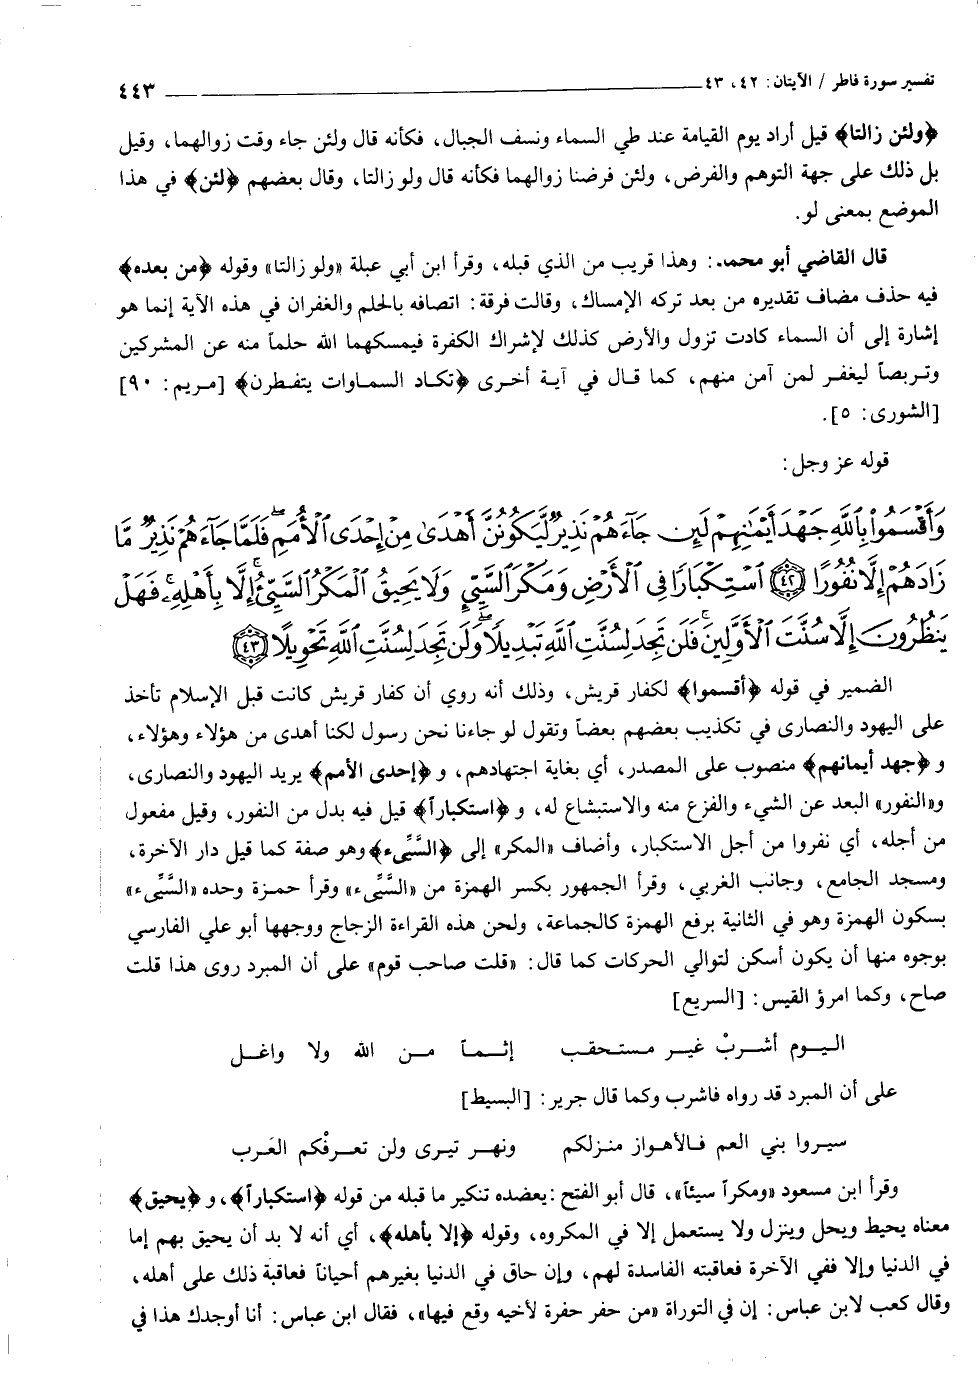 تفسير سورة فاطر / الآيتان: ٤٢، ٤٣ ٤٤٣
﴿ولئن زالتا﴾ قيل أراد يوم القيامة عند طي السماء ونسف الجبال، فكأنه قال ولئن جاء وقت زوالهما، وقيل
بل ذلك على جهة التوهم والفرض، ولئن فرضنا زوالهما فكأنه قال ولو زالتا، وقال بعضهم ﴿لئن﴾ في هذا
الموضع بمعنى لو.
قال القاضي أبو محمد: وهذا قريب من الذي قبله، وقرأ ابن أبي عبلة «ولو زالتا» وقوله ﴿من بعده﴾
فيه حذف مضاف تقديره من بعد تركه الإمساك، وقالت فرقة: اتصافه بالحلم والغفران في هذه الآية إنما هو
إشارة إلى أن السماء كادت تزول والأرض كذلك لإشراك الكفرة فيمسكهما الله حلماً منه عن المشركين
وتربصاً ليغفر لمن آمن منهم، كما قال في آية أخرى ﴿تكاد السماوات يتفطرن﴾ [مريم: ٩٠]
[الشورى: ٥].
قوله عز وجل:
وَأَقْسَمُوا۟ بِٱللَّهِ جَهْدَ أَيْمَٰنِهِمْ لَئِن جَآءَهُمْ نَذِيرٌ لَّيَكُونُنَّ أَهْدَىٰ مِنْ إِحْدَى ٱلْأُمَمِ ۖ فَلَمَّا جَآءَهُمْ نَذِيرٌ مَّا
زَادَهُمْ إِلَّا نُفُورًا ﴿٤٢﴾ ٱسْتِكْبَارًا فِى ٱلْأَرْضِ وَمَكْرَ ٱلسَّيِّئِ ۚ وَلَا يَحِيقُ ٱلْمَكْرُ ٱلسَّيِّئُ إِلَّا بِأَهْلِهِۦ ۚ فَهَلْ
يَنظُرُونَ إِلَّا سُنَّتَ ٱلْأَوَّلِينَ ۚ فَلَن تَجِدَ لِسُنَّتِ ٱللَّهِ تَبْدِيلًا ۖ وَلَن تَجِدَ لِسُنَّتِ ٱللَّهِ تَحْوِيلًا ﴿٤٣﴾
الضمير في قوله ﴿أقسموا﴾ لكفار قريش، وذلك أنه روي أن كفار قريش كانت قبل الإسلام تأخذ
على اليهود والنصارى في تكذيب بعضهم بعضاً وتقول لو جاءنا نحن رسول لكنا أهدى من هؤلاء وهؤلاء،
و ﴿جهد أيمانهم﴾ منصوب على المصدر، أي بغاية اجتهادهم، و ﴿إحدى الأمم﴾ يريد اليهود والنصارى،
و«النفور» البعد عن الشيء والفزع منه والاستبشاع له، و ﴿استكباراً﴾ قيل فيه بدل من النفور، وقيل مفعول
من أجله، أي نفروا من أجل الاستكبار، وأضاف «المكر» إلى ﴿السَّيِّىء﴾وهو صفة كما قيل دار الآخرة،
ومسجد الجامع، وجانب الغربي، وقرأ الجمهور بكسر الهمزة من «السَّيِّىء» وقرأ حمزة وحده «السَّيِّىء»
بسكون الهمزة وهو في الثانية برفع الهمزة كالجماعة، ولحن هذه القراءة الزجاج ووجهها أبو علي الفارسي
بوجوه منها أن يكون أسكن لتوالي الحركات كما قال: «قلت صاحب قوم» على أن المبرد روى هذا قلت
صاح، وكما امرؤ القيس: [السريع]
اليوم أشربْ غير مستحقب إثماً من الله ولا واغل
على أن المبرد قد رواه فاشرب وكما قال جرير: [البسيط]
سيروا بني العم فالأهواز منزلكم ونهر تيرى ولن تعرفْكم العَرب
وقرأ ابن مسعود «ومكراً سيئاً»، قال أبو الفتح :يعضده تنكير ما قبله من قوله ﴿استكباراً﴾، و ﴿يحيق﴾
معناه يحيط ويحل وينزل ولا يستعمل إلا في المكروه، وقوله ﴿إلا بأهله﴾، أي أنه لا بد أن يحيق بهم إما
في الدنيا وإلا ففي الآخرة فعاقبته الفاسدة لهم، وإن حاق في الدنيا بغيرهم أحياناً فعاقبة ذلك على أهله،
وقال كعب لابن عباس: إن في التوراة «من حفر حفرة لأخيه وقع فيها»، فقال ابن عباس: أنا أوجدك هذا في